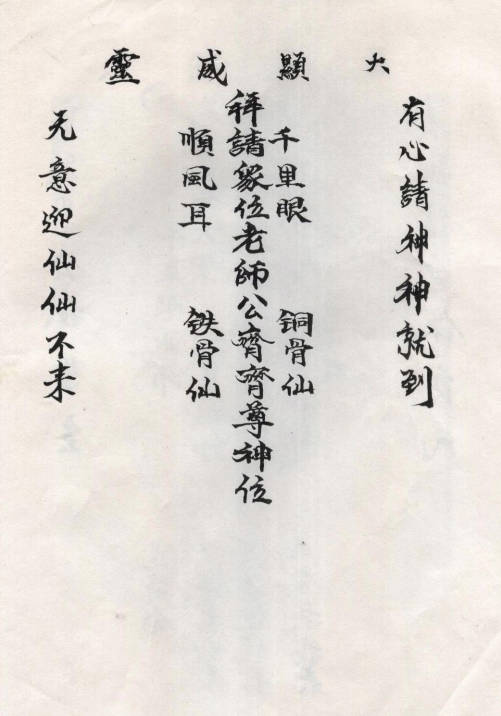 大顯威靈
有心請神神就到
千里眼 銅骨仙
拜請衆位老師公齊齊尊神位
順風耳 鉄骨仙
无意迎仙仙不来